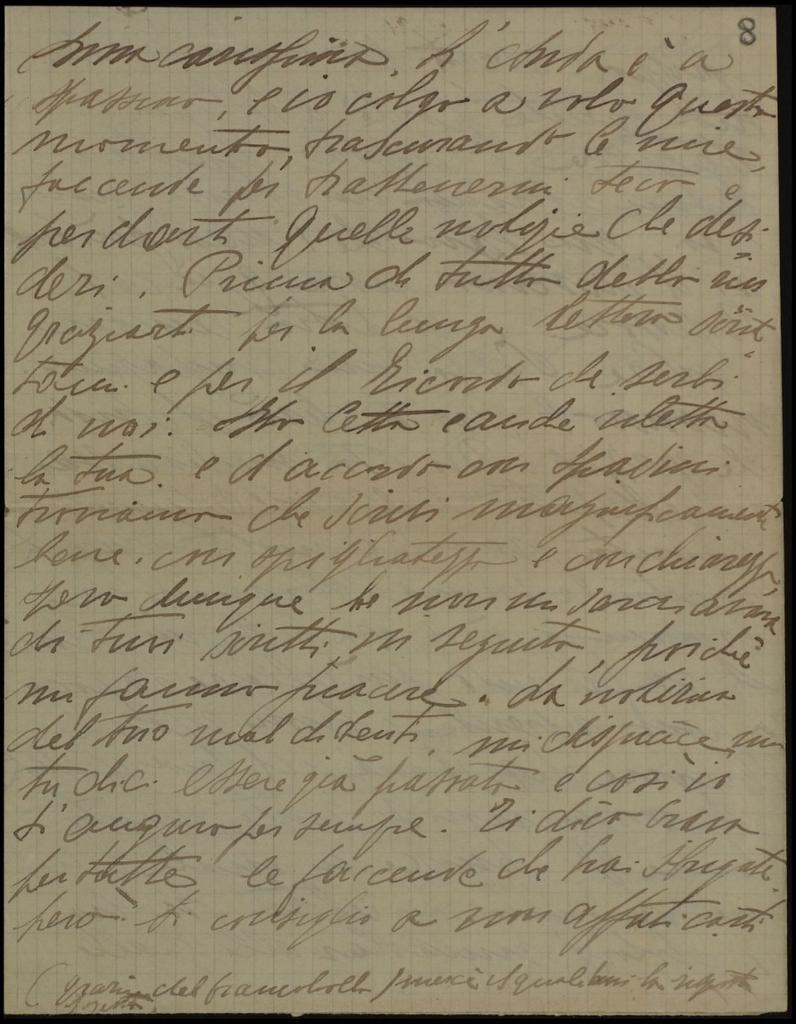 8
carissima, L' è a
spassino, e io colgo a volo questo
momento, trascurando le mie
faccende per trattenermi teco e
per darti quelle notizie che desi-
deri. Prima di tutto debbo rin
graziarti per la lunga lettera scrit
tami e per il ricordo che serbi
di noi. Ho letta e anche riletta
la tua. e d'accordo con Spadini
troviamo che scrivi magnificamente
bene. con spigliatezza e con chiarezza,
spero dunque che non mi sarai avara
di tuoi scritti in seguito, poichè
mi fanno piacere. La notizia
del tuo mal di denti, mi dispiace, ma
tu dici essere già passato e così io
t'auguro per sempre. Ti dico brava
per tutte le faccende che hai sbrigate.
però ti consiglio a non affaticarti
(grazie del francobollo mercè il quale la risposta